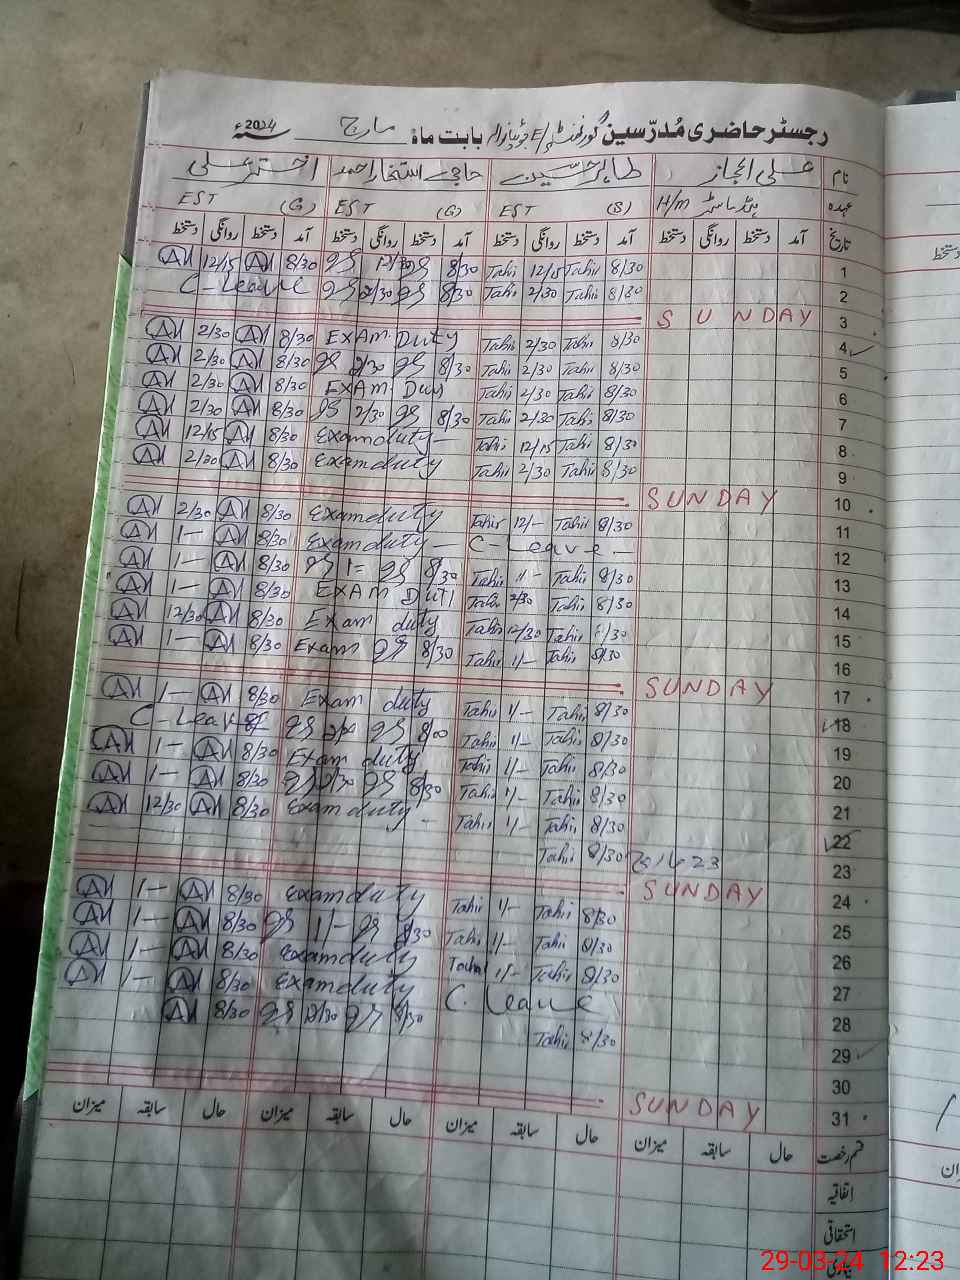 رجسٹر حاضری مُدرّسین گورنمنٹ بابت ماہ مارچ 2024ء
نام علی اعجاز طاہر حسین حاجی استخار احمد اختر علی
عہدہ ہیڈ ماسٹر H/M EST (S) EST (G) EST (G)
تاریخ آمد دستخط روانگی دستخط آمد دستخط روانگی دستخط آمد دستخط روانگی دستخط آمد دستخط روانگی دستخط
1 8/30 Tahir 12/15 Tahir 8/30 12/30 8/30 12/15
2 8/30 Tahir 2/30 Tahir 8/30 2/30 C-Leave
3 SUNDAY
4 8/30 Tahir 2/30 Tahir EXAM Duty 8/30 2/30
5 8/30 Tahir 2/30 Tahir 8/30 2/30 8/30 2/30
6 8/30 Tahir 2/30 Tahir EXAM Duty 8/30 2/30
7 8/30 Tahir 2/30 Tahir 8/30 2/30 8/30 2/30
8 8/30 Tahir 12/15 Tahir Exam duty 8/30 12/15
9 8/30 Tahir 2/30 Tahir Exam duty 8/30 2/30
10 SUNDAY
11 8/30 Tahir 12/- Tahir Exam duty 8/30 2/30
12 C-Leave - Exam duty - 8/30 1-
13 8/30 Tahir 1/- Tahir 8/30 1= 8/30 1-
14 8/30 Tahir 2/30 Tahir EXAM Duty 8/30 1-
15 8/30 Tahir 12/30 Tahir Exam duty 8/30 12/30
16 8/30 Tahir 1/- Tahir 8/30 Exam 8/30 1-
17 SUNDAY
18 8/30 Tahir 1/- Tahir Exam duty 8/30 1-
19 8/30 Tahir 1/- Tahir 8/00 C-Leave
20 8/30 Tahir 1/- Tahir Exam duty 8/30 1-
21 8/30 Tahir 1/- Tahir 8/30 2/30 8/30 1-
22 8/30 Tahir 1/- Tahir Exam duty - 8/30 12/30
23 23 مارچ 8/30 Tahir
24 SUNDAY
25 8/30 Tahir 1/- Tahir Exam duty 8/30 1-
26 8/30 Tahir 1/- Tahir 8/30 1/- 8/30 1-
27 8/30 Tahir 1/- Tahir Exam duty 8/30 1-
28 C. Leave Exam duty 8/30 1-
29 8/30 Tahir 8/30 12/30 8/30
30
31 SUNDAY
قسم رخصت حال سابقہ میزان حال سابقہ میزان حال سابقہ میزان حال سابقہ میزان
اتفاقیہ
استحقاقی
بیماری
29-03-24 12:23
دستخط